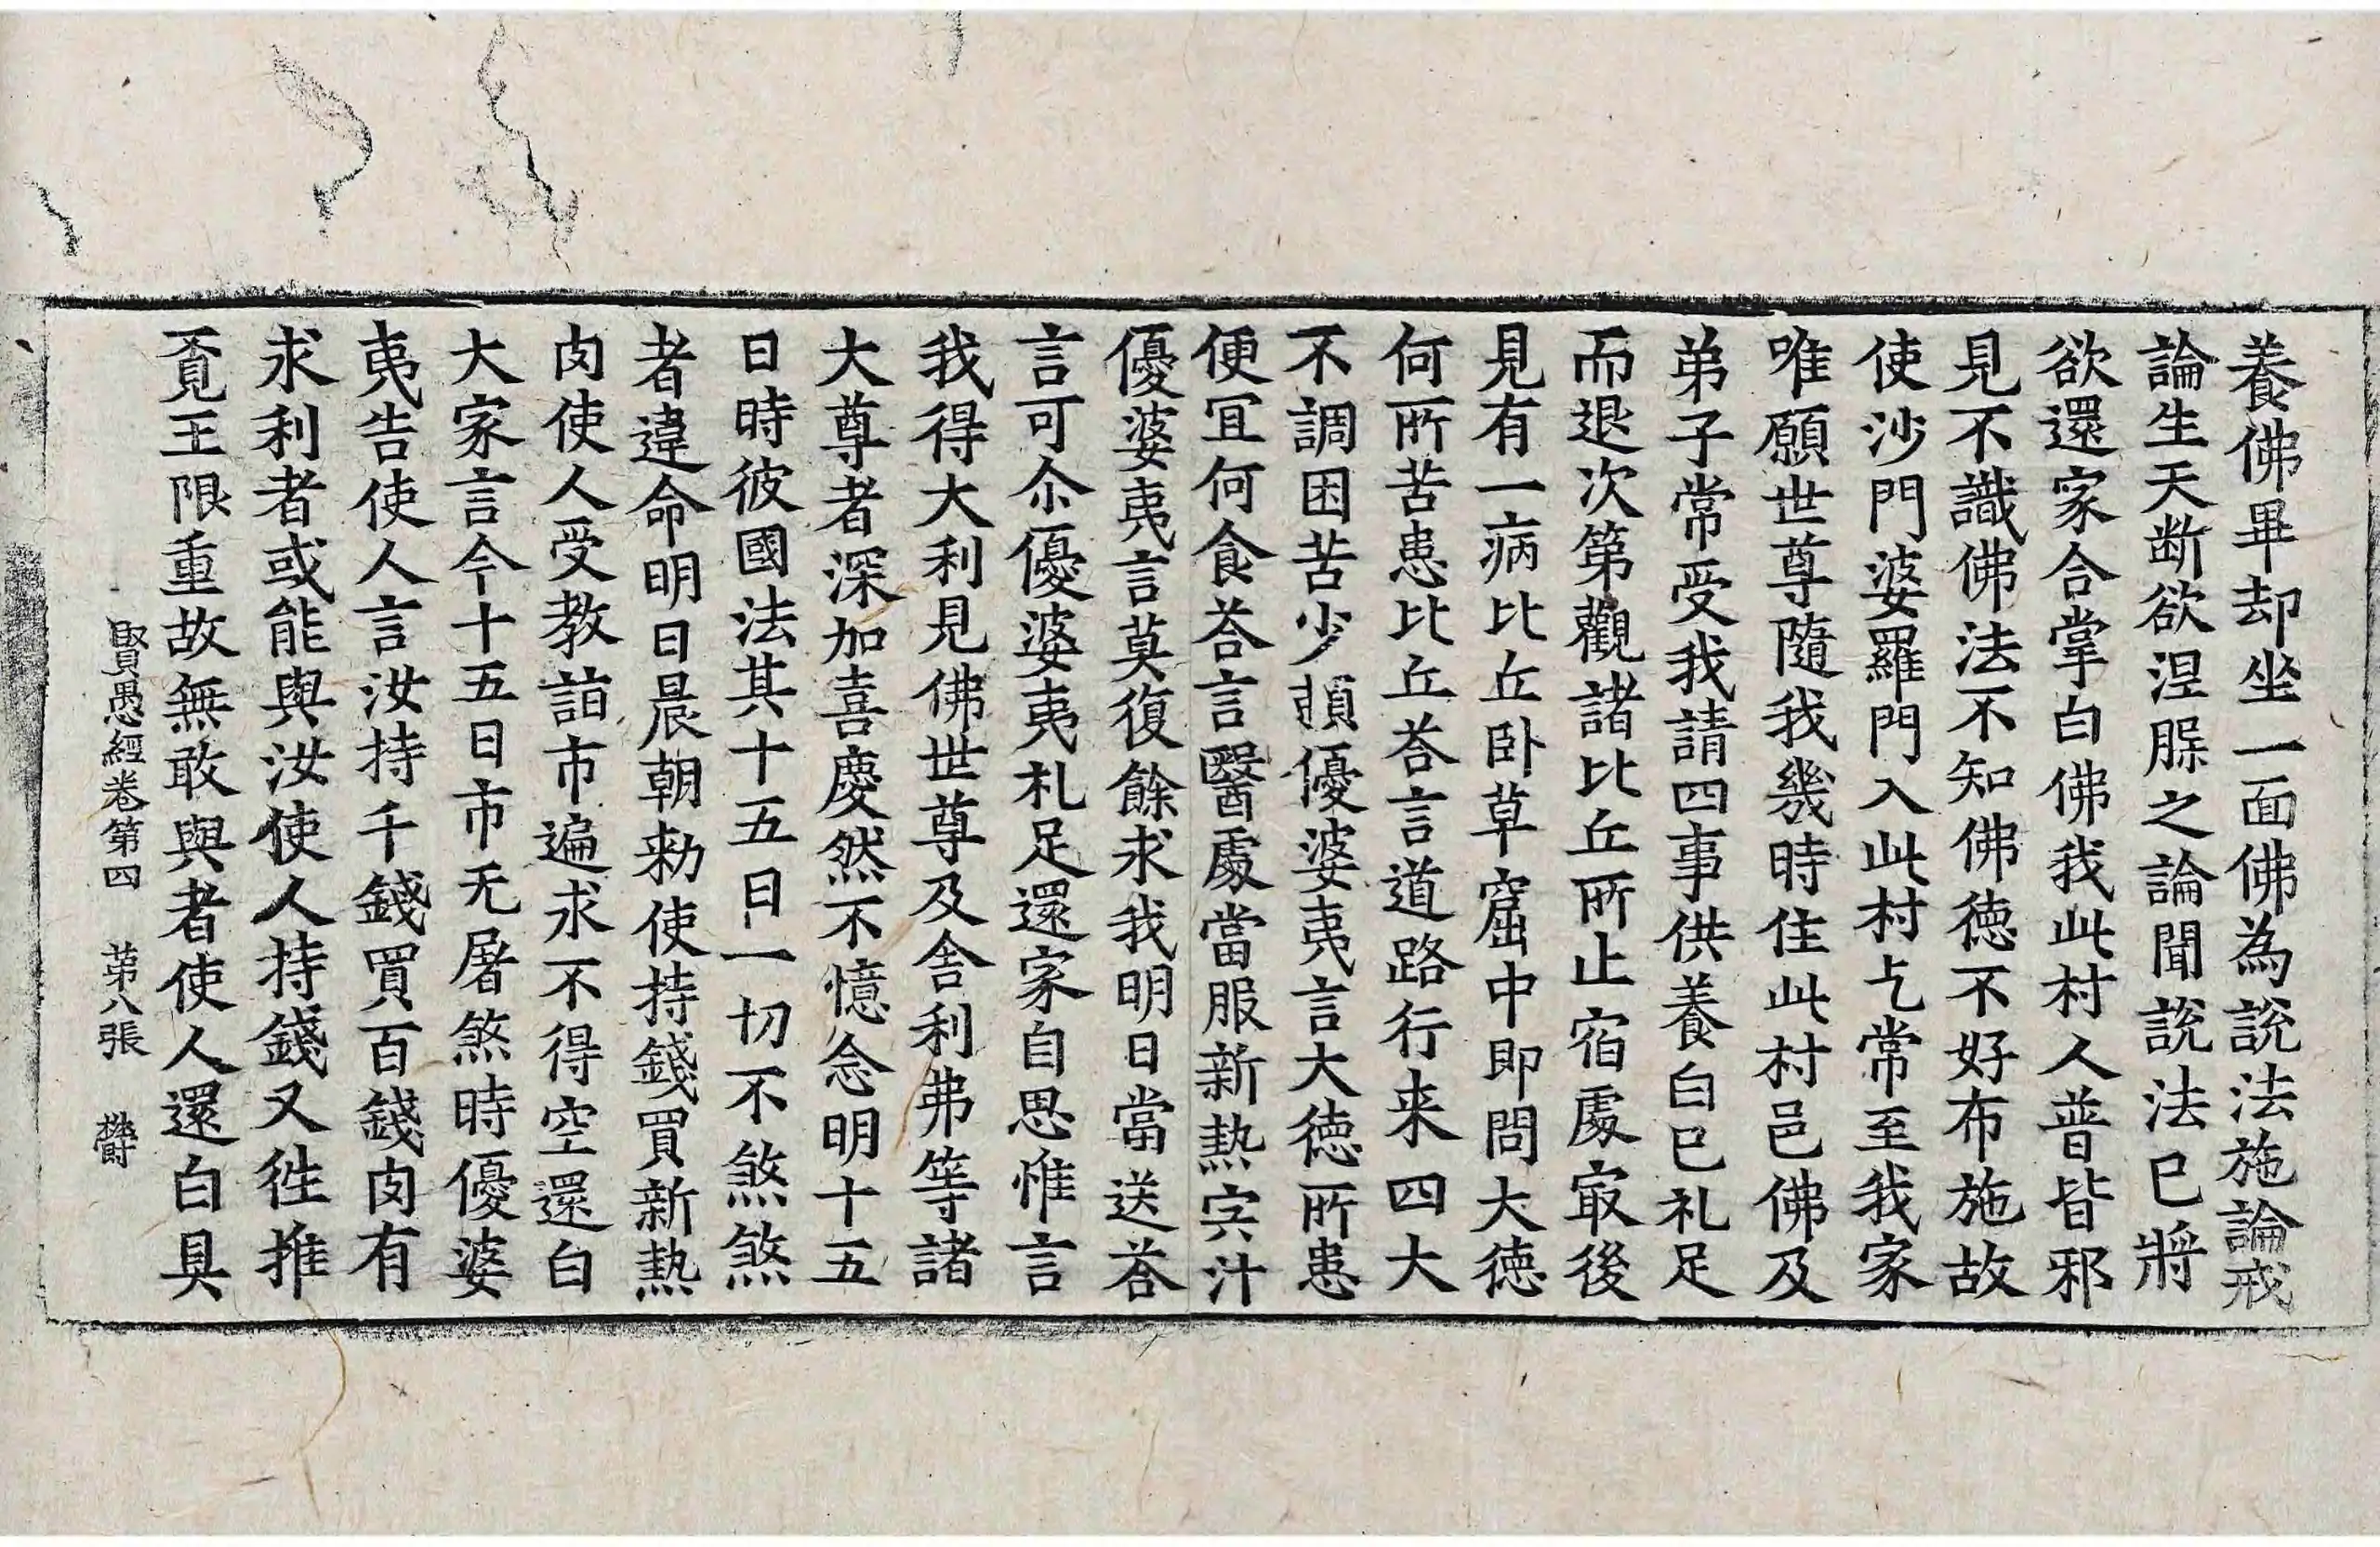 養佛畢却坐一面佛為說法施論戒
論生天断欲涅脲之論聞說法已將
欲還家合掌白佛我此村人普皆邪
見不識佛法不知佛德不好布施故
使沙門婆羅門入此村乞常至我家
唯願世尊隨我幾時住此村邑佛及
弟子常受我請四事供養白已礼足
而退次第觀諸比丘所止宿處㝡後
見有一病比丘卧草窟中即問大德
何所苦患比丘荅言道路行来四大
不調困苦少頼優婆夷言大德所患
便冝何食荅言醫處當服新熱宍汁
優婆夷言莫復餘求我明日當送荅
言可尒優婆夷礼足還家自思惟言
我得大利見佛世尊及舎利弗等諸
大尊者深加喜慶然不憶念明十五
日時彼國法其十五日一切不煞煞
者違命明日晨朝勑使持錢買新熱
肉使人受教詣市遍求不得空還白
大家言今十五日市无屠煞時優婆
夷告使人言汝持千錢買百錢肉有
求利者或能與汝使人持錢又徃推
覔王限重故無敢與者使人還白具
賢愚經卷第四　苐八張　欝